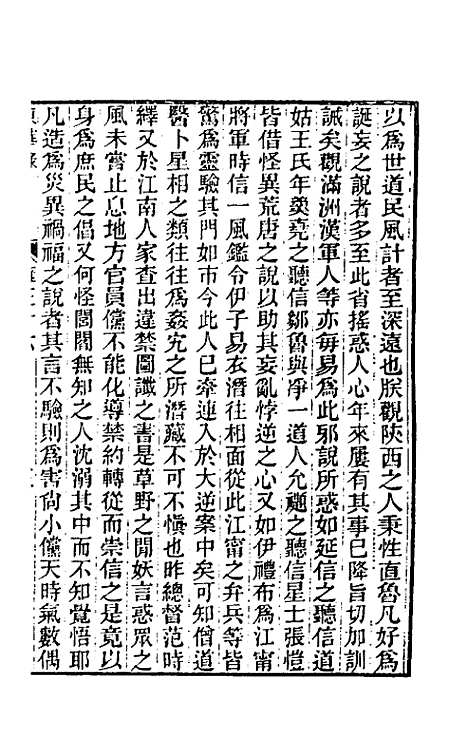 以爲世道民風計者至深遠也朕觀陝西之人秉性直魯凡好爲
誕妄之說者多至此省搖惑人心年來屢有其事巳降旨切加訓
誡矣觀滿洲漢軍人等亦每易爲此邪說所惑如延信之聽信道
姑王氏年羹堯之聽信鄒魯與凈一道人允禵之聽信星士張愷
皆借怪異荒唐之說以助其妄亂悖逆之心又如伊禮布爲江甯
將軍時信一風鑑令伊子易衣潛往相面從此江甯之弁兵等皆
驚爲靈驗其門如市今此人巳牽連入於大逆案中矣可知僧道
醫卜星相之類往往爲姦宄之所潛藏不可不愼也昨總督范時
繹又於江南人家查出違禁圖讖之書是草野之閒妖言惑眾之
風未嘗止息地方官員儻不能化導禁約轉從而崇信之是竟以
身爲庶民之倡又何怪閭閻無知之人沈溺其中而不知覺悟耶
凡造爲災異禍福之說者其言不驗則爲害尙小儻天時氣數偶
東華錄